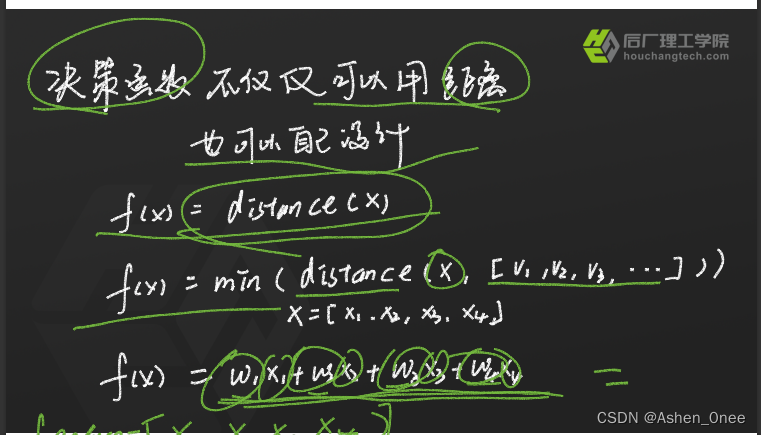 后厂理工学院
houchangtech.com
决策函数 不仅仅可以用 距离
也可以自己设计
f(x) = distance(x)
f(x) = min( distance (x, [v₁,v₂,v₃, ⋯]))
X=[x₁.x₂,x₃,x₄]
f(x) = w₁x₁+w₂x₂+w₃x₃+w₄x₄ =
CSDN @Ashen_0nee